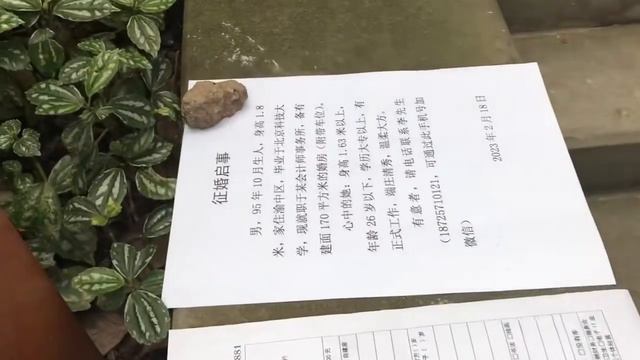 征婚启事
男，95年10月生人，身高1.8
米，家住渝中区，毕业于北京科技大
学，现就职于某会计师事务所，备有
建面170平方米的婚房（附带车位）。
心中的她：身高1.63米以上，
年龄26岁以下，学历大专以上，有
正式工作，端庄清秀，温柔大方。
有意者，请电话联系李先生
（18725710121，可通过此手机号加
微信）
2023年2月18日
881